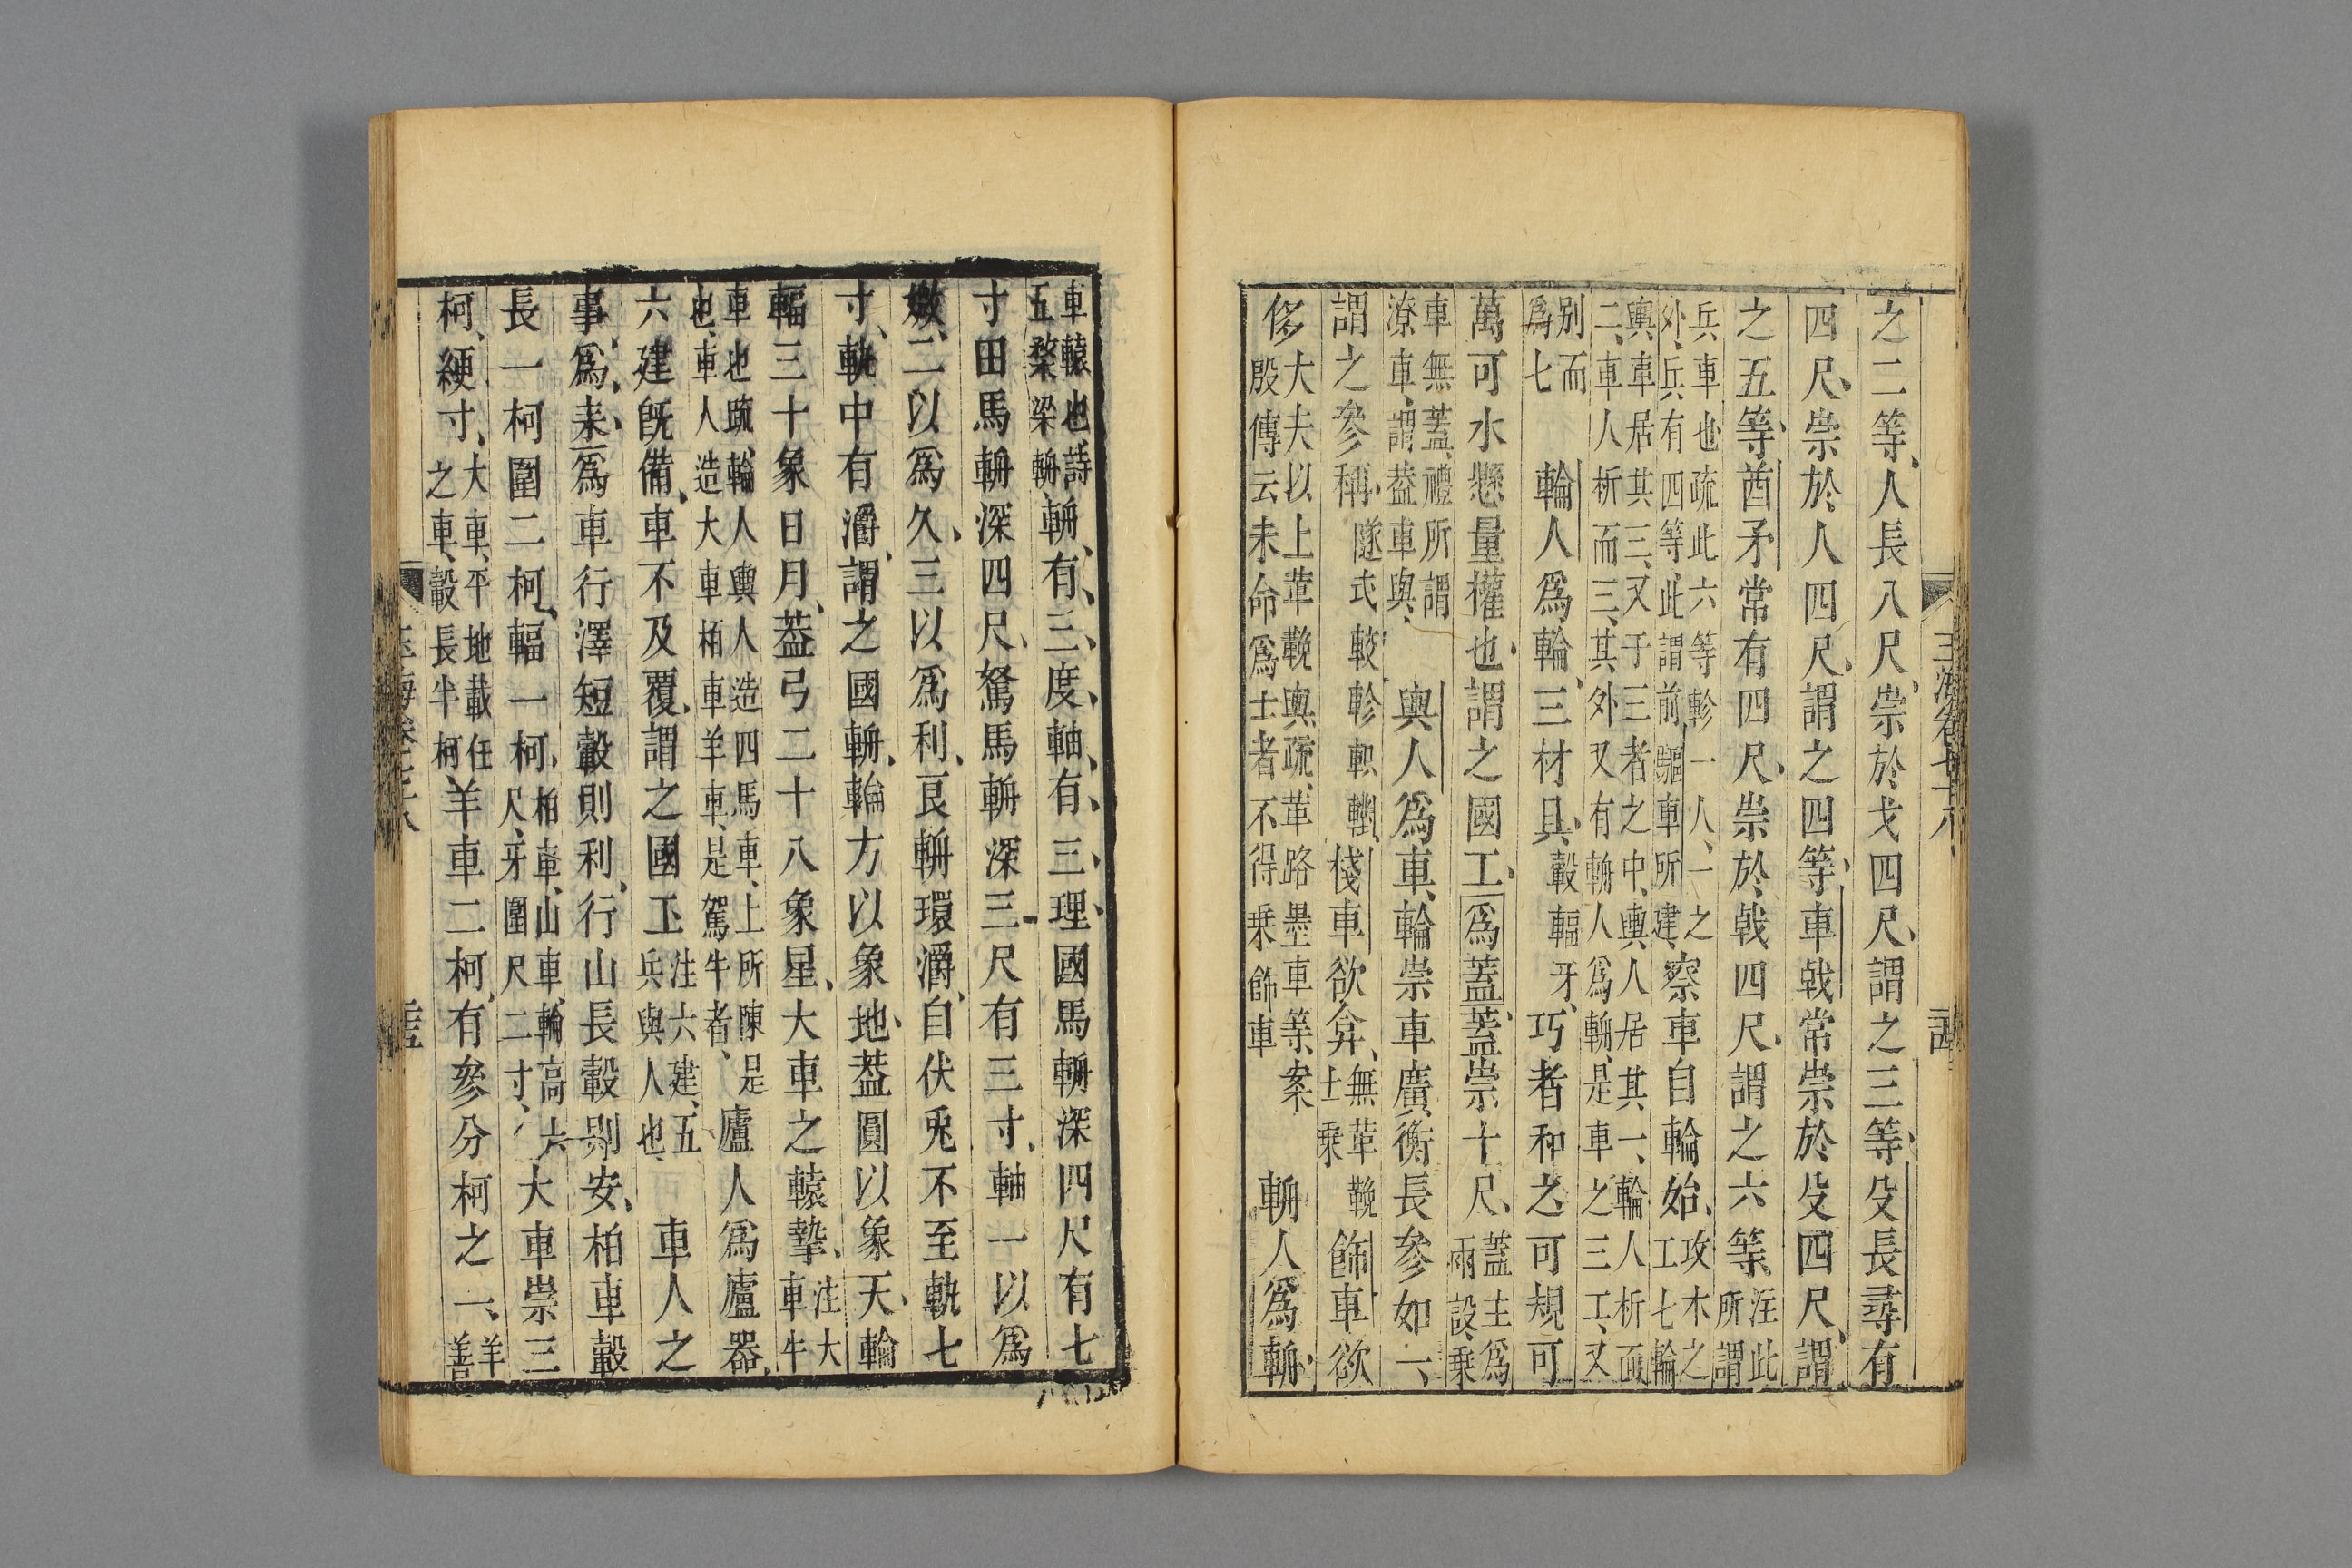 之二等、人長八尺、崇於戈四尺、謂之三等、殳長尋有
四尺、崇於人四尺、謂之四等、車戟常崇於殳四尺、謂
之五等、酋矛常有四尺、崇於戟四尺、謂之六等、注此所謂
兵車也疏此六等軫一人、一之
外、兵有四等此謂前驅車所建、察車自輪始、攻木之工七輪
輿車居其三、又于三者之中、輿人居其一、輪人析而
二、車人析而三、其外又有輈人爲輈、是車之三工、又
別而爲七 輪人爲輪、三材具、轂輻牙、巧者和之可規可
萬可水懸量權也、謂之國工、爲蓋蓋崇十尺、蓋主爲雨設、乗
車無蓋、禮所謂
潦車、謂葢車與、 輿人爲車、輪崇車廣、衡長參如一、
謂之參稱、隧式較軫軹轛、棧車欲弇、無革鞔士乗飾車欲
侈大夫以上革鞔輿疏、革路墨車等、案
殷傳云未命爲士者不得乗飾車 輈人爲輈、
三海卷七十八
車轅也詩
五楘梁輈、輈、有、三、度、軸、有、三、理、國馬輈深四尺有七
寸田馬輈深四尺、駑馬輈深三尺有三寸、軸一以爲
媺、二以爲久、三以爲利、良輈環灂、自伏兎不至軓七
寸、軓中有灂、謂之國輈、輪方以象地、葢圓以象天、輪
輻三十象日月、葢弓二十八象星、大車之轅摯、注大車牛
車也疏、輪人輿人造四馬車、上所陳是
也、車人造大車栢車羊車、是駕牛者、廬人爲廬器、
六建旣備、車不及覆、謂之國工注六建、五兵與人也 車人之
事、爲、耒、爲車行澤短轂則利、行山長轂則安、柏車轂
長一柯圍二柯、輻一柯、柏車、山車、輪高六
尺、牙圍尺二寸、大車崇三
柯、綆寸、大車、平地載任
之車、轂長半柯羊車二柯、有參分柯之一、羊善